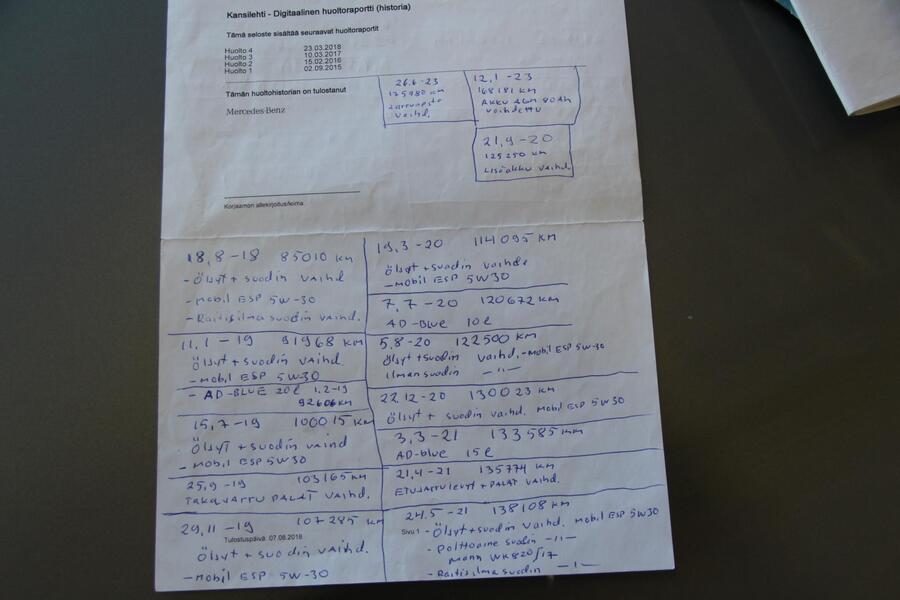 Kansilehti - Digitaalinen huoltoraportti (historia)
Tämä seloste sisältää seuraavat huoltoraportit
Huolto 4 23.03.2018
Huolto 3 10.03.2017
Huolto 2 15.02.2016
Huolto 1 02.09.2015
Tämän huoltohistorian on tulostanut
Mercedes-Benz
26.6-23
175980 km
vaihd.
12,1-23
168181 KM
AKKU AGM 80Ah
vaihdettu
21,9-20
125250 km
Lisäakku vaihd.
Korjaamon allekirjoitus/leima
18,8-18 85010 km
- Öljyt + suodin vaihd
- Mobil ESP 5W-30
- Raitisilma suodin vaihd.
11,1-19 91968 KM
Öljyt + suodin vaihd.
- Mobil ESP 5W-30
- AD-BLUE 20l 1,2-19
92606KM
15,7-19 100015 KM
Öljyt + suodin vaihd
- Mobil ESP 5W30
25,9-19 103165 KM
TAKAJARRU PALAT vaihd.
29,11-19 107285 KM
Tulostuspäivä: 07.08.2018
Öljyt + suodin vaihd.
- Mobil ESP 5W-30
19,3-20 114095 KM
Öljyt + suodin vaihd.
- Mobil ESP 5W30
7,7-20 120672 KM
AD-Blue 10l
5,8-20 122500 KM
Öljyt + suodin vaihd. - Mobil ESP 5W-30
ilmansuodin -"-
22.12-20 130023 KM
Öljyt + suodin vaihd. Mobil ESP 5W30
3,3-21 133585 KM
AD-blue 15l
21,4-21 135774 KM
ETUJARRULEVYT + PALAT vaihd.
24,5-21 138108 KM
Sivu 1 - Öljyt + suodin vaihd. Mobil ESP 5W30
- Polttoaine suodin -"-
Mann WK820/17
- Raitisilma suodin -"-